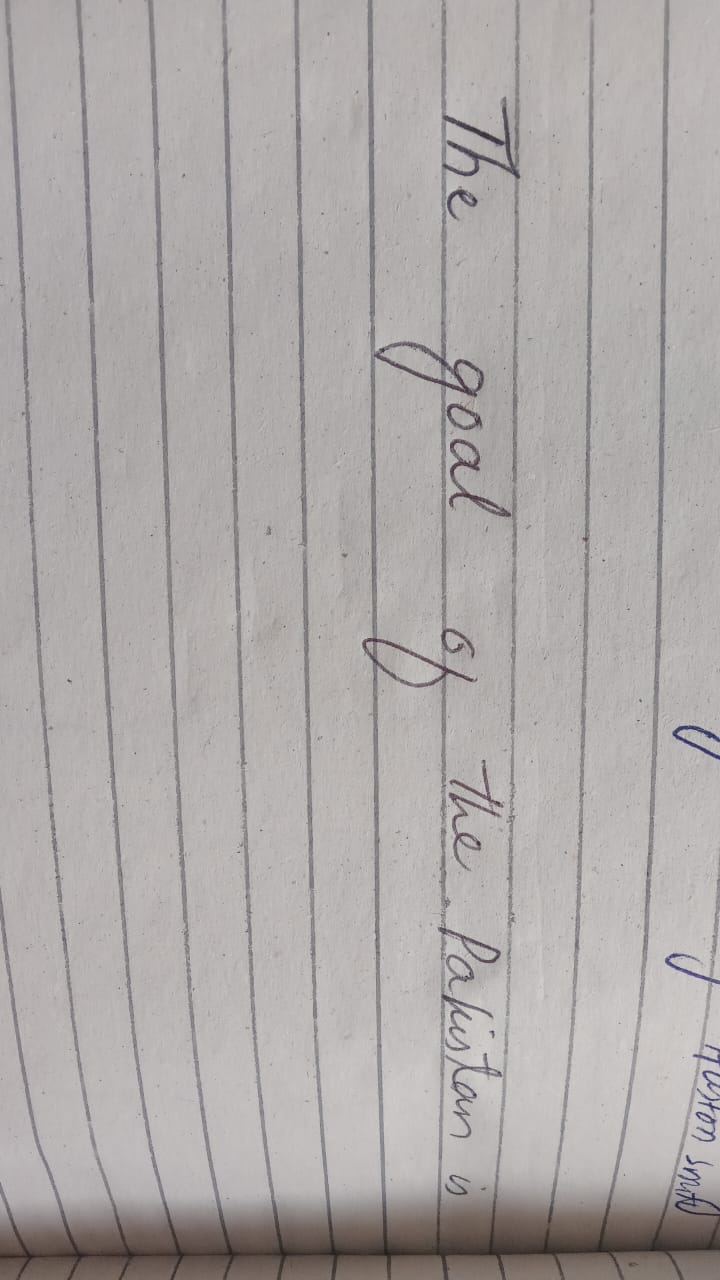 Huston Smith
The goal of the Pakistan is